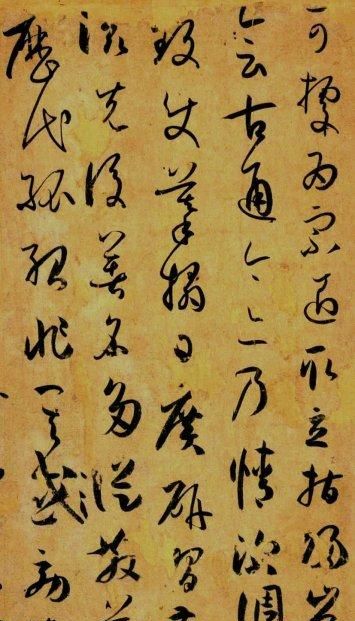 可據為宗匠取立指歸豈
會古通今亦乃情深調
致使摹搨日廣研習歲
滋先後著名多從散落
歷代孤紹非其效與